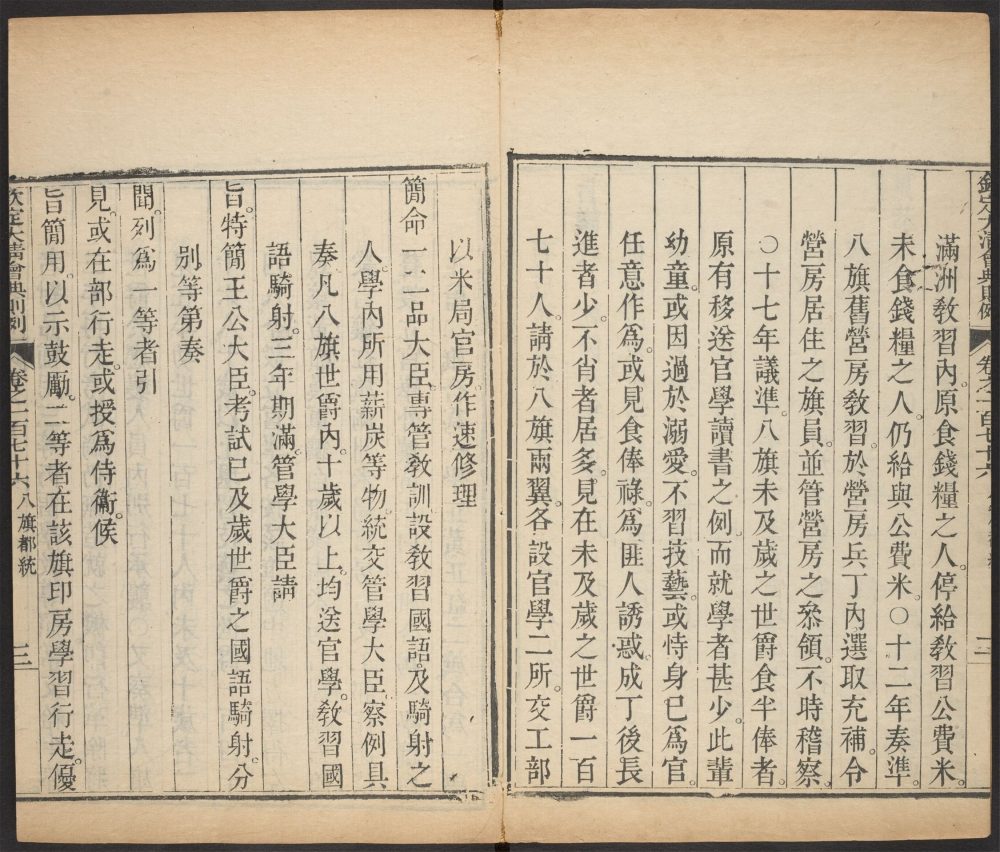 欽定大清會典則例 卷之一百七十六
滿洲敎習內。原食錢糧之人。停給敎習公費米。
未食錢糧之人。仍給與公費米。〇十二年奏準。
八旗舊營房敎習。於營房兵丁內選取充補。令
營房居住之旗員。並管營房之叅領。不時稽察。
〇十七年議準。八旗未及歲之世爵食半俸者。
原有移送官學讀書之例。而就學者甚少。此輩
幼童。或因過於溺愛。不習技藝。或恃身已爲官。
任意作爲。或見食俸祿。爲匪人誘惑。成丁後長
進者少。不肖者居多。見在未及歲之世爵一百
七十人。請於八旗兩翼。各設官學二所。交工部
以米局官房。作速修理
簡命一二品大臣。專管敎訓。設敎習國語。及騎射之
人。學內所用薪炭等物。統交管學大臣。察例具
奏。凡八旗世爵內。十歲以上。均送官學。敎習國
語騎射。三年期滿。管學大臣請
旨。特簡王公大臣。考試已及歲世爵之國語騎射。分
別等第奏
聞。列爲一等者引
見。或在部行走。或授爲侍衞。候
旨簡用。以示鼓勵。二等者在該旗印房學習行走。優
欽定大淸會典則例 卷之一百七十六 八旗都統 三